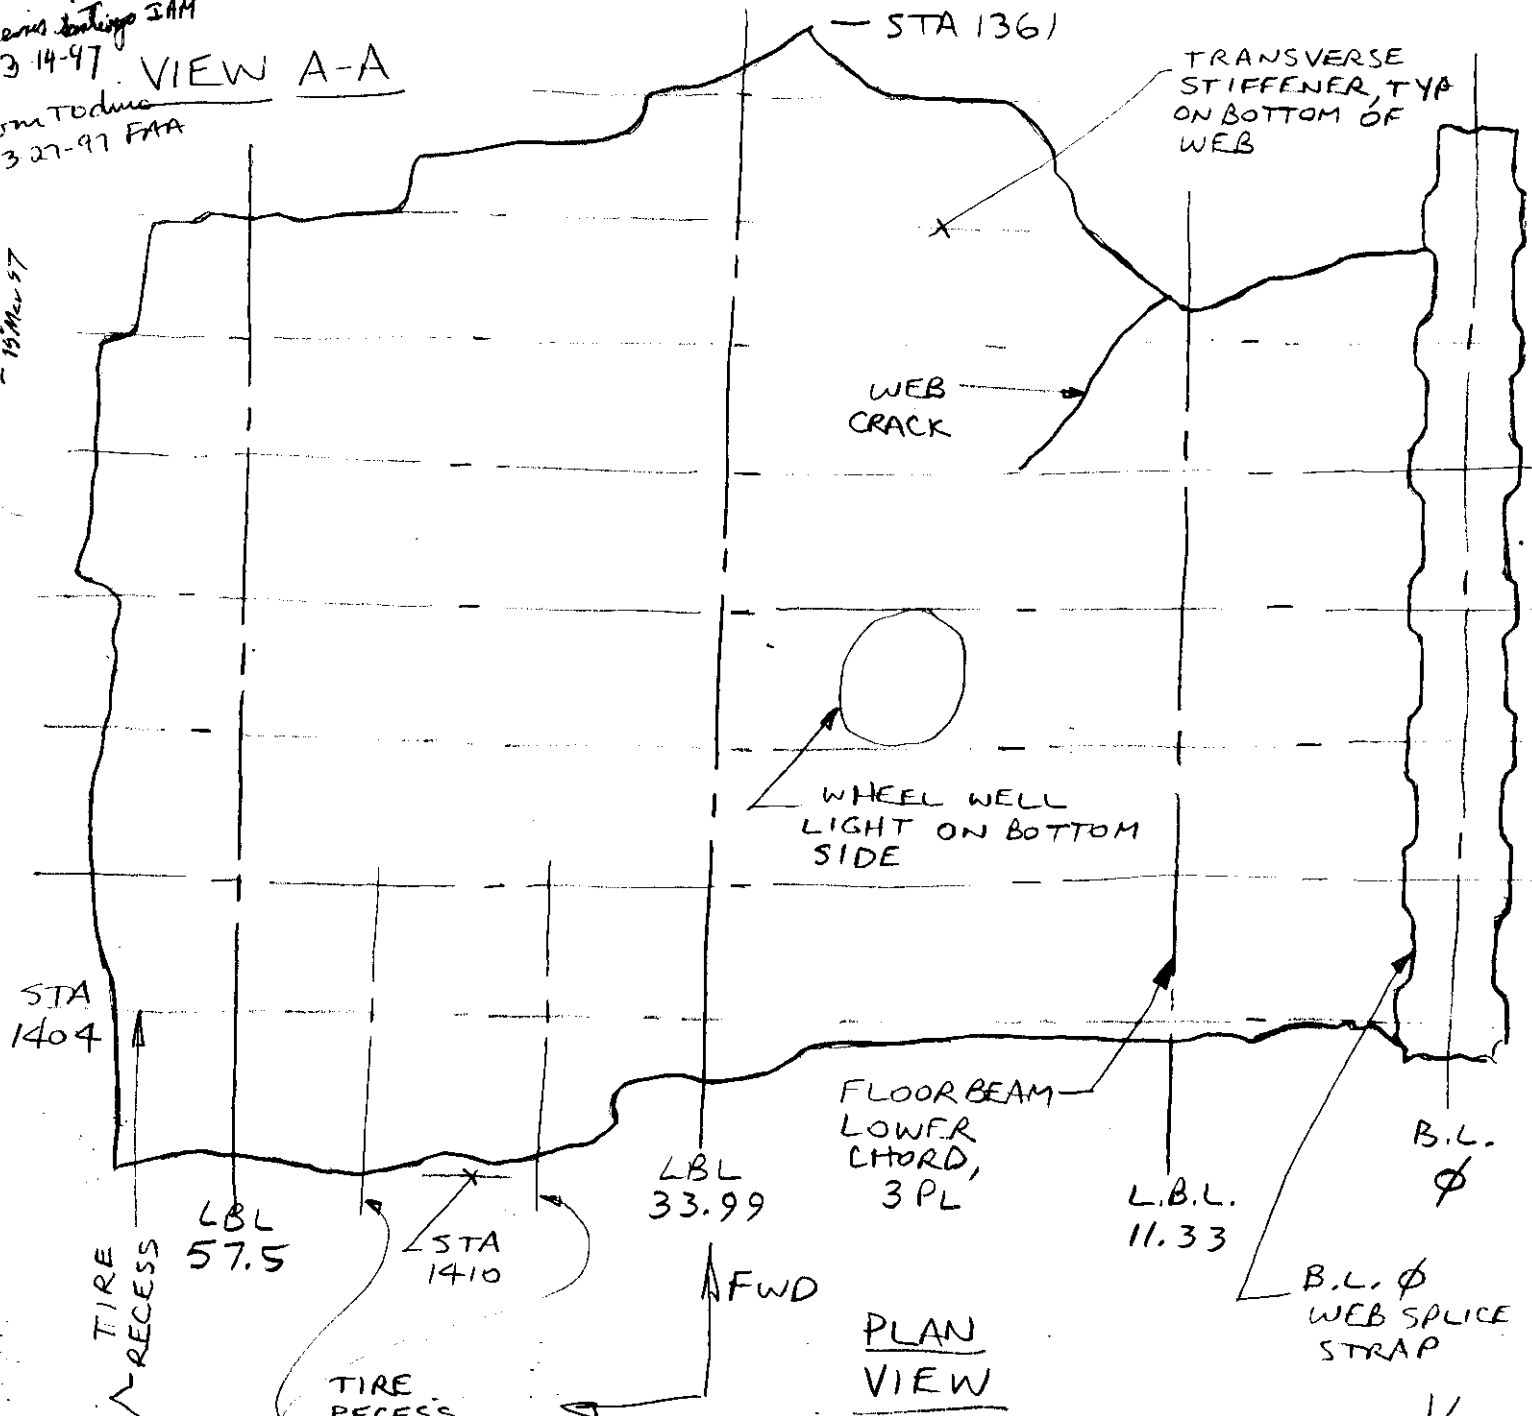 IAM
3-14-97
VIEW A-A
3-27-97 FAA
STA 1361
TRANSVERSE
STIFFENER, TYP
ON BOTTOM OF
WEB
WEB
CRACK
WHEEL WELL
LIGHT ON BOTTOM
SIDE
STA
1404
FLOORBEAM
LOWER
CHORD,
3 PL
TIRE
RECESS
LBL
57.5
STA
1410
LBL
33.99
L.B.L.
11.33
B.L.
Ø
B.L. Ø
WEB SPLICE
STRAP
FWD
PLAN
VIEW
TIRE
RECESS